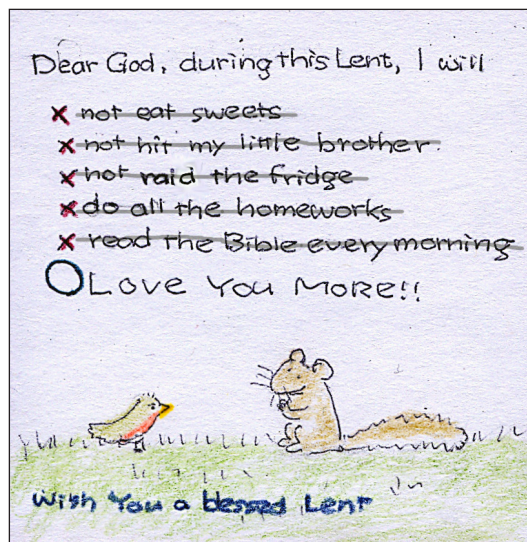 Dear God, during this Lent, I will
x not eat sweets
x not hit my little brother
x not raid the fridge
x do all the homeworks
x read the Bible every morning
O Love You More!!
Wish You a blessed Lent